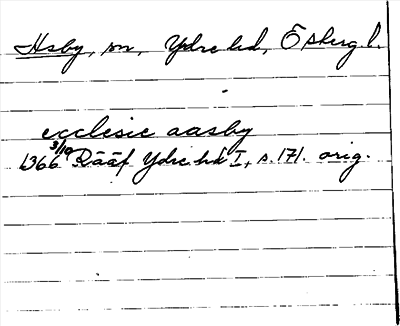 Asby, sn, Ydre hd, Östergl.
ecclesie aasby
1366 3/10 Rääf Ydre hd I, s. 171. orig.